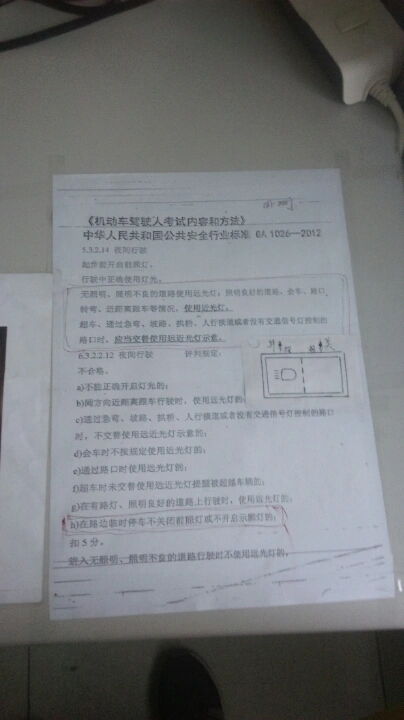 《机动车驾驶人考试内容和方法》
中华人民共和国公共安全行业标准 GA 1026—2012
5.3.2.14 夜间行驶
起步前开启前照灯。
行驶中正确使用灯光。
无照明、照明不良的道路使用远光灯；照明良好的道路、会车、路口
转弯、近距离跟车等情况，使用近光灯。
超车、通过急弯、坡路、拱桥、人行横道或者没有交通信号灯控制的
路口时，应当交替使用远近光灯示意。
6.3.2.2.12 夜间行驶 评判规定：
不合格。
a)不能正确开启灯光的；
b)同方向近距离跟车行驶时，使用远光灯的；
c)通过急弯、坡路、拱桥、人行横道或者没有交通信号灯控制的路口
时，不交替使用远近光灯示意的；
d)会车时不按规定使用近光灯的；
e)通过路口时使用远光灯的；
f)超车时未交替使用远近光灯提醒被超越车辆的；
g)在有路灯、照明良好的道路上行驶时，使用远光灯的；
h)在路边临时停车不关闭前照灯或不开启示廓灯的；
扣 5 分。
进入无照明、照明不良的道路行驶时不使用远光灯的。